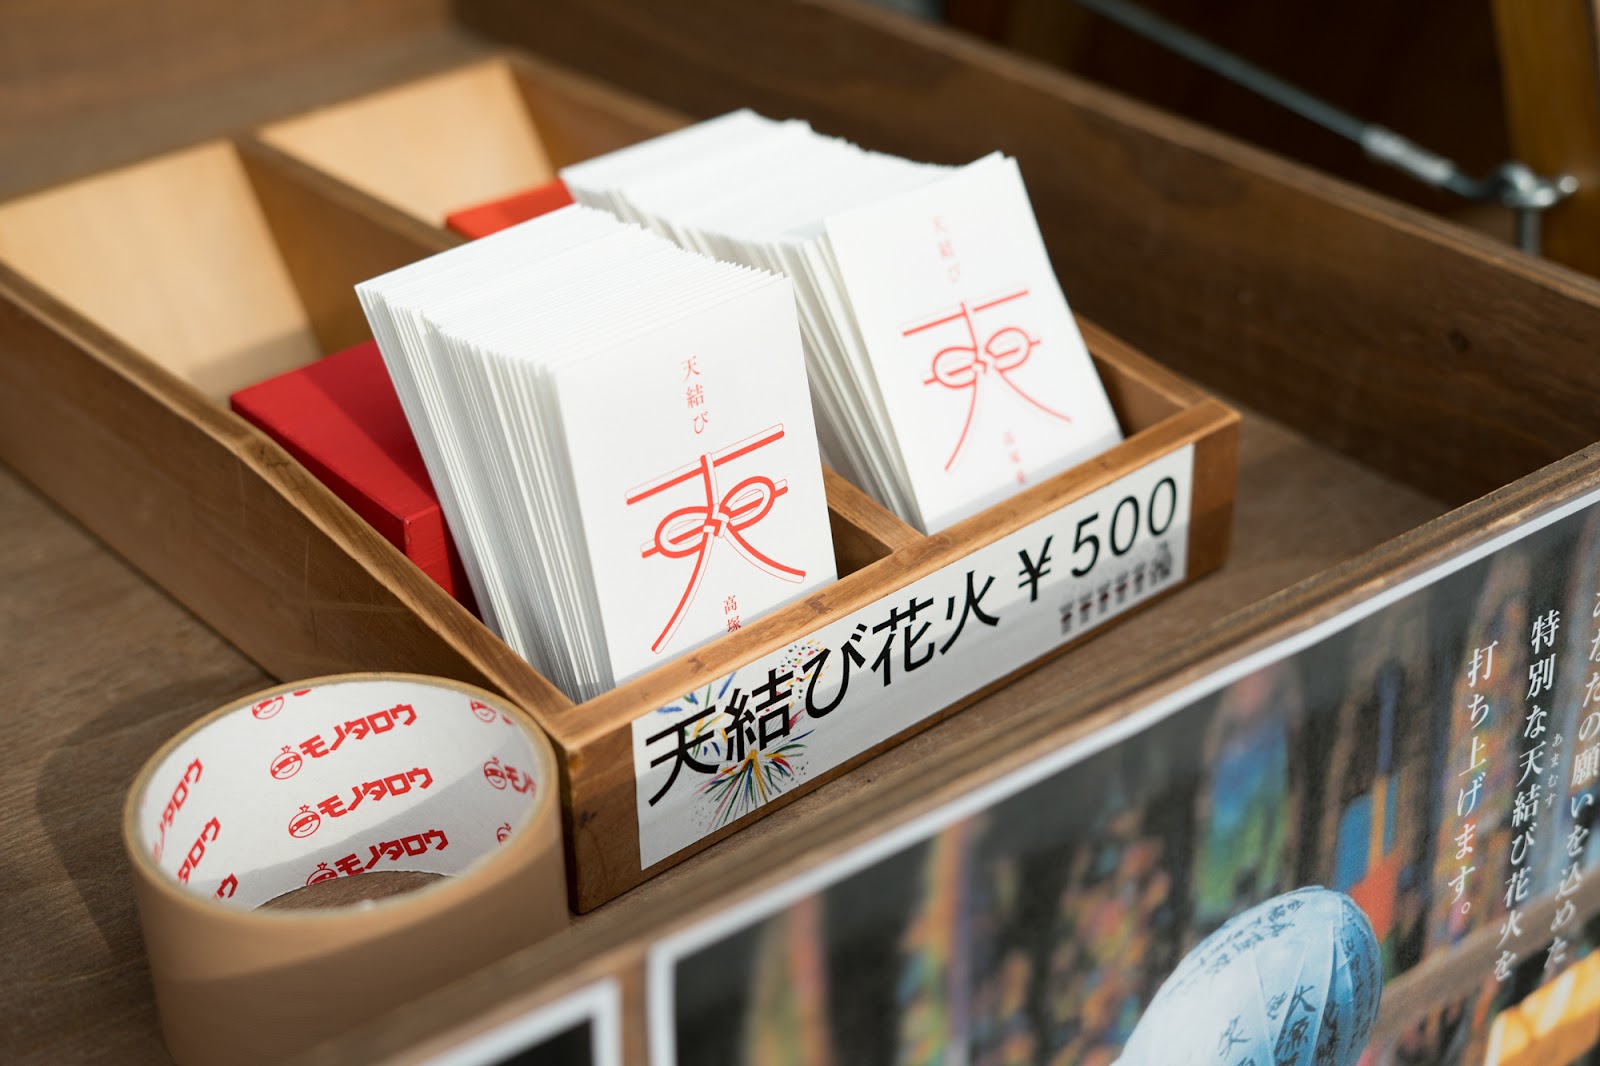 天結び
高塚
天結び
天結び花火￥500
モノタロウ
モノタロウ
モノタロウ
モノタロウ
タロウ
あなたの願いを込めた
特別な天結び花火を
あまむす
打ち上げます。